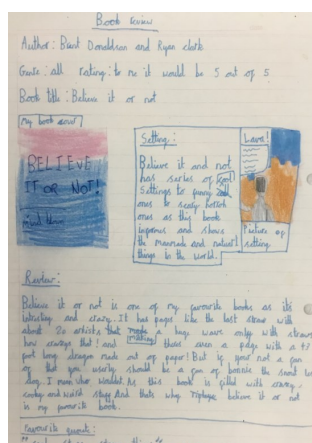 Book review
Author: Brent Donaldson and Ryan clark
Genre: all rating: to me it would be 5 out of 5
Book title: Believe it or not
My book cover
BELIEVE
IT OR NOT!
Setting:
Believe it and not
has series of cool
Settings to funny
ones to scary horror
ones as this book
expresses and shows
the manmade and natural
things to the world.
Lava!
Picture of
setting
Review:
Believe it or not is one of my favourite books as its
intresting and crazy. It has pages like the last straw with
about 20 artists that made a huge wave only with straws
how crazy is that! and theres even a page with a 43
foot long dragon made out of paper! But if your not a fan
of that you should be a fan of bonnie the snout less
dog. I mean who wouldnt. As this book is filled with crazy,
wacky and weird stuff And thats why ripleys believe it or not
is my favourite book.
Favourite quote: